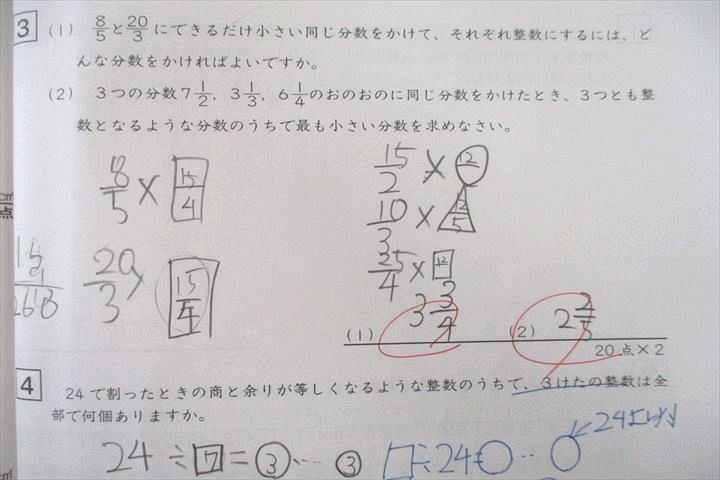 3 (1) 8/5と20/3にできるだけ小さい同じ分数をかけて、それぞれ整数にするには、ど
んな分数をかければよいですか。
(2) 3つの分数7 1/2, 3 1/3, 6 1/4のおのおのに同じ分数をかけたとき、3つとも整
数となるような分数のうちで最も小さい分数を求めなさい。
8/5 × 15/4
20/3 × 15/4
15/2 × 12
10/3 × 12/5
25/4 × 12
(1) 3 3/4
(2) 2 2/5
20点×2
4 24で割ったときの商と余りが等しくなるような整数のうちで、3けたの整数は全
部で何個ありますか。
24÷7=3…3
□÷24=○…○